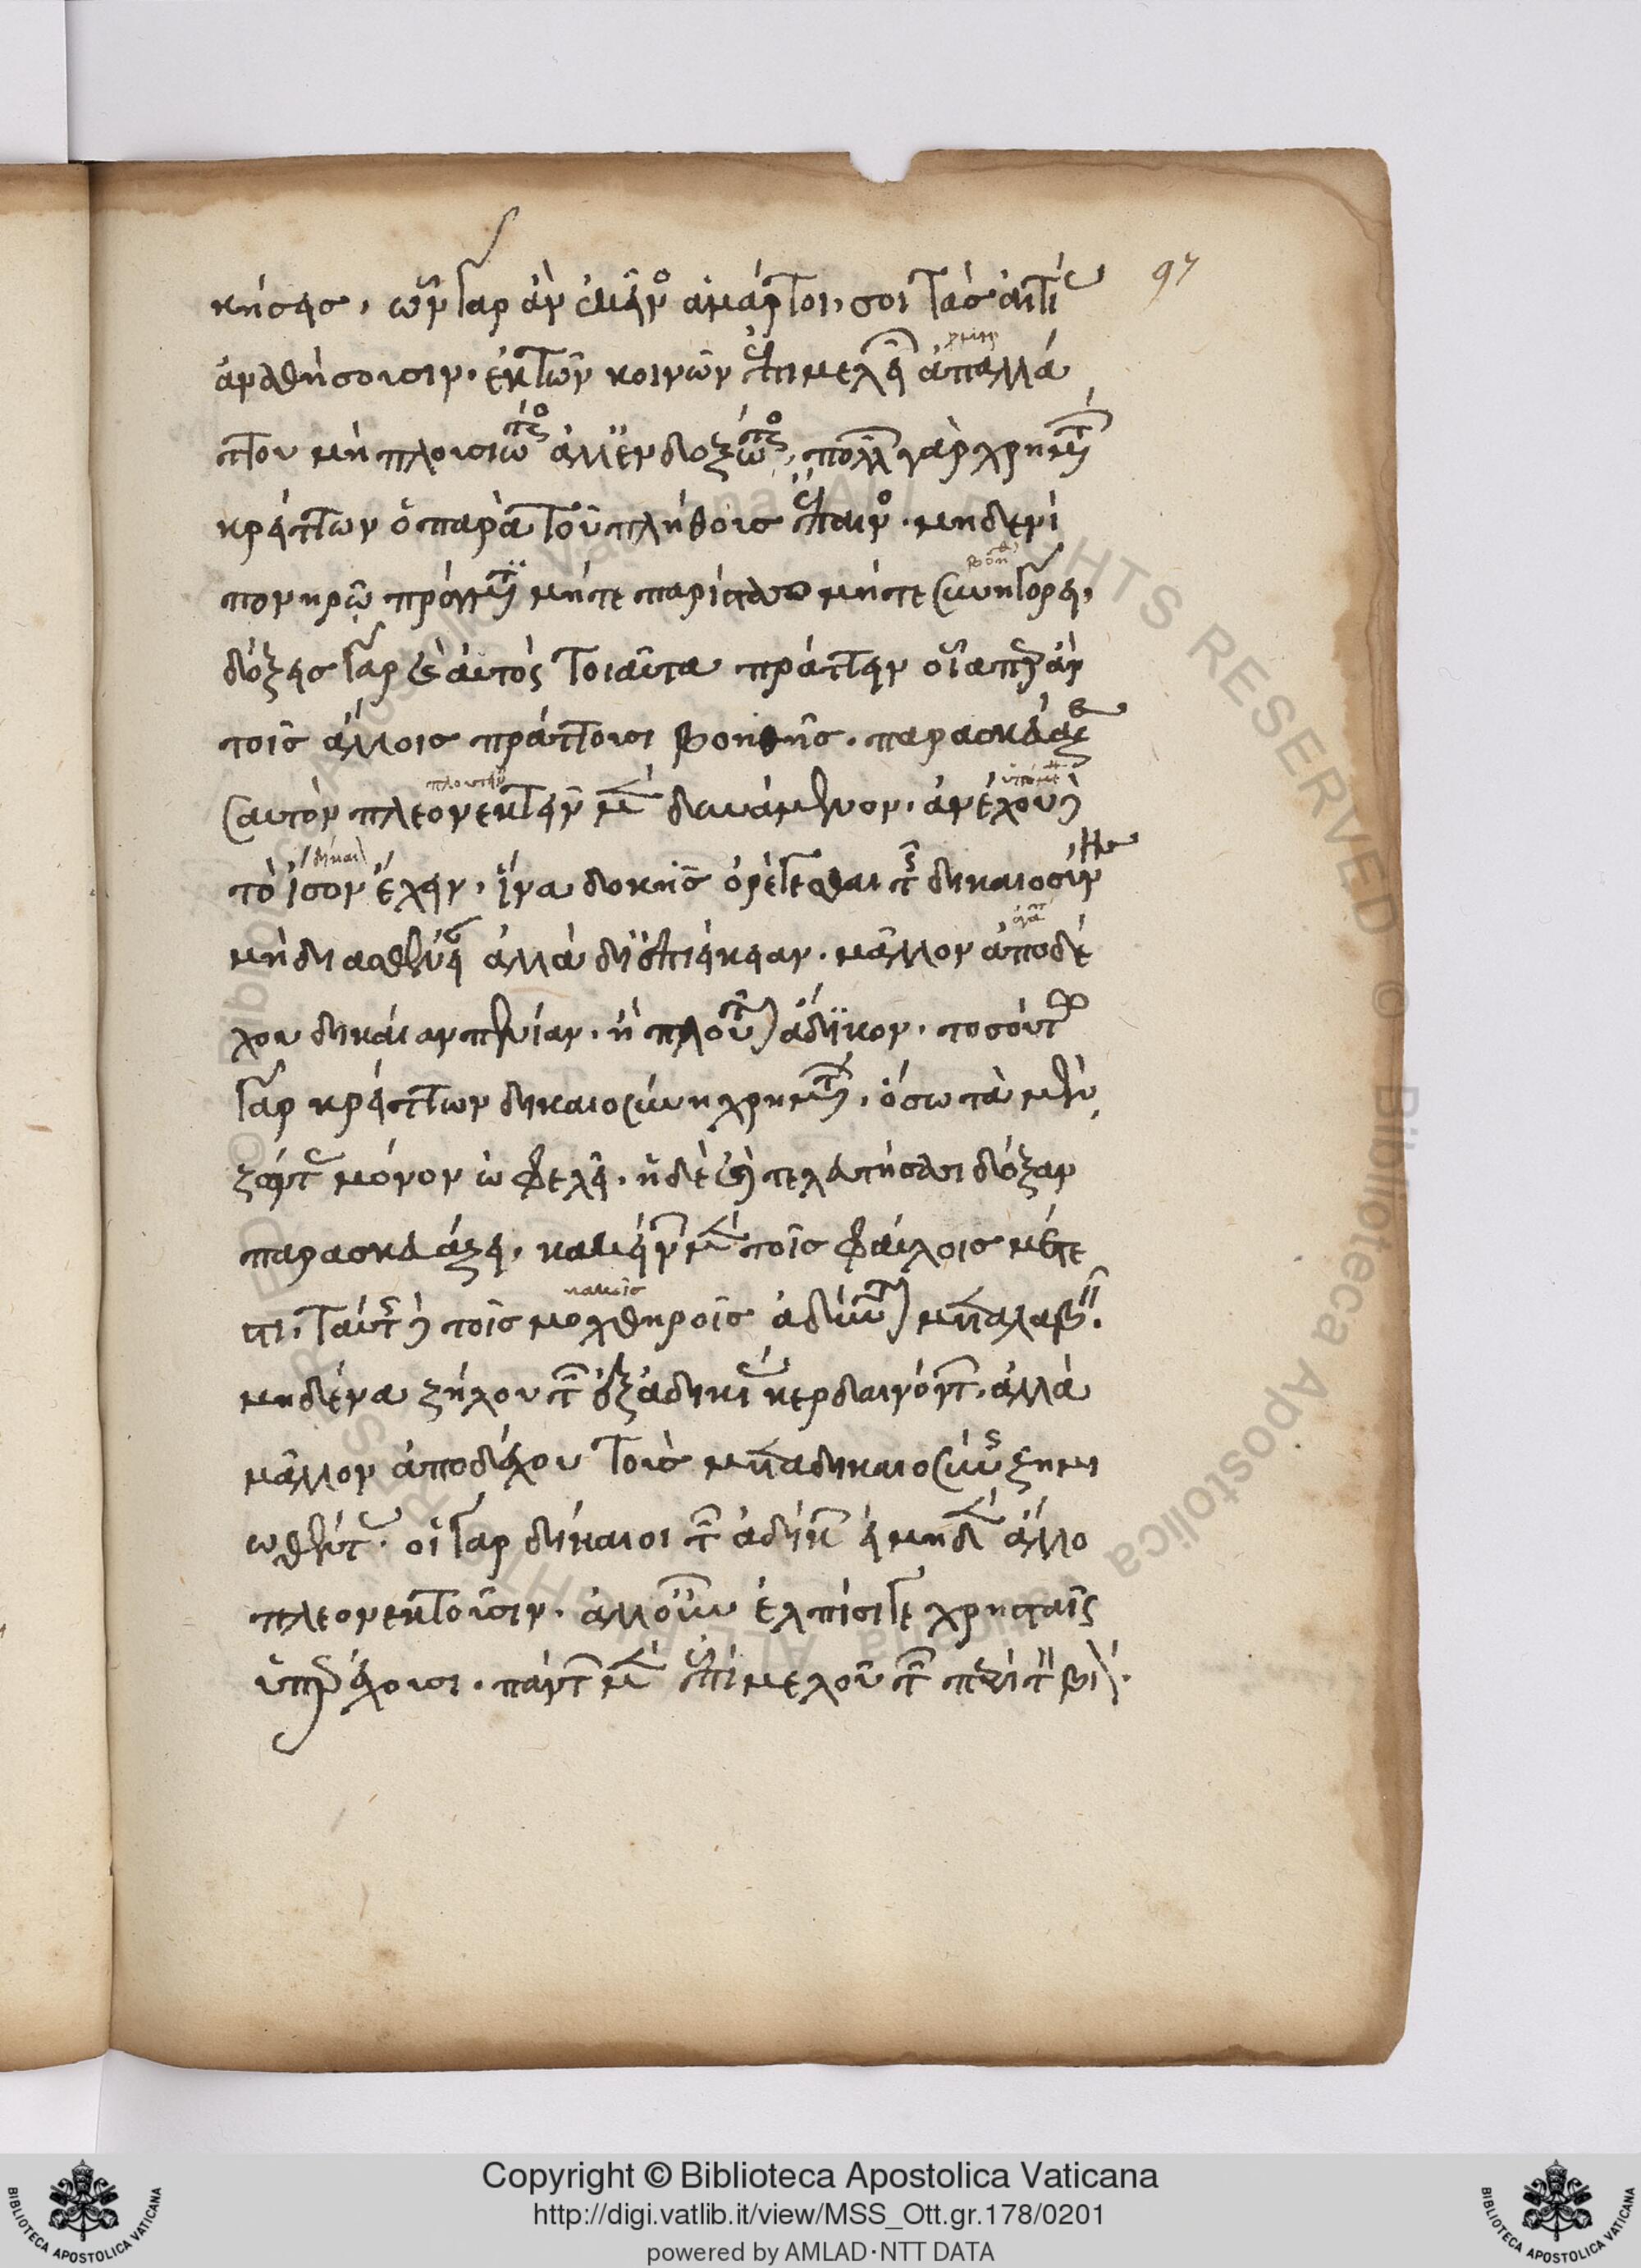 97
κήσεις, ὧν γὰρ ἂν ἐκεῖνος ἁμάρτοι, σοὶ τὰς αἰτί
ας ἀναθήσουσιν. ἐκ τῶν κοινῶν ἐπιμελειῶν ἀπαλλά
ττου μὴ πλουσιώτερος ἀλλ' ἐνδοξότερος, πολλῶν γὰρ χρημάτων
κρείττων ὁ παρὰ τοῦ πλήθους ἔπαινος. μηδενὶ
πονηρῷ πράγματι μήτε παρίστασο μήτε συνηγόρει,
δόξεις γὰρ καὶ αὐτὸς τοιαῦτα πράττειν οἷάπερ ἂν
τοῖς ἄλλοις πράττουσι βοηθῇς. παρασκεύαζε
σαυτὸν πλεονεκτεῖν μὲν δυνάμενον, ἀνέχου δὲ
τὸ ἴσον ἔχειν, ἵνα δοκῇς ὀρέγεσθαι τῆς δικαιοσύνης
μὴ δι' ἀσθένειαν ἀλλὰ δι' ἐπιείκειαν. μᾶλλον ἀποδέ
χου δικαίαν πενίαν, ἢ πλοῦτον ἄδικον. τοσούτῳ
γὰρ κρείττων δικαιοσύνη χρημάτων, ὅσῳ τὰ μὲν
ζῶντας μόνον ὠφελεῖ, ἡ δὲ καὶ τελευτήσασι δόξαν
παρασκευάζει, κἀκείνων μὲν τοῖς φαύλοις μέτε
στι, ταύτης δὲ τοῖς μοχθηροῖς ἀδύνατον μεταλαβεῖν.
μηδένα ζήλου τῶν ἐξ ἀδικίας κερδαινόντων, ἀλλὰ
μᾶλλον ἀποδέχου τοὺς μετὰ δικαιοσύνης ζημι
ωθέντας. οἱ γὰρ δίκαιοι τῶν ἀδίκων εἰ μηδὲν ἄλλο
πλεονεκτοῦσιν, ἀλλ' οὖν ἐλπίσι γε χρησταῖς
ὑπερέχουσι. πάντων μὲν ἐπιμελοῦ τῶν περὶ τὸν βίον.
Copyright © Biblioteca Apostolica Vaticana
http://digi.vatlib.it/view/MSS_Ott.gr.178/0201
powered by AMLAD·NTT DATA
BIBLIOTECA APOSTOLICA VATICANA
BIBLIOTECA APOSTOLICA VATICANA